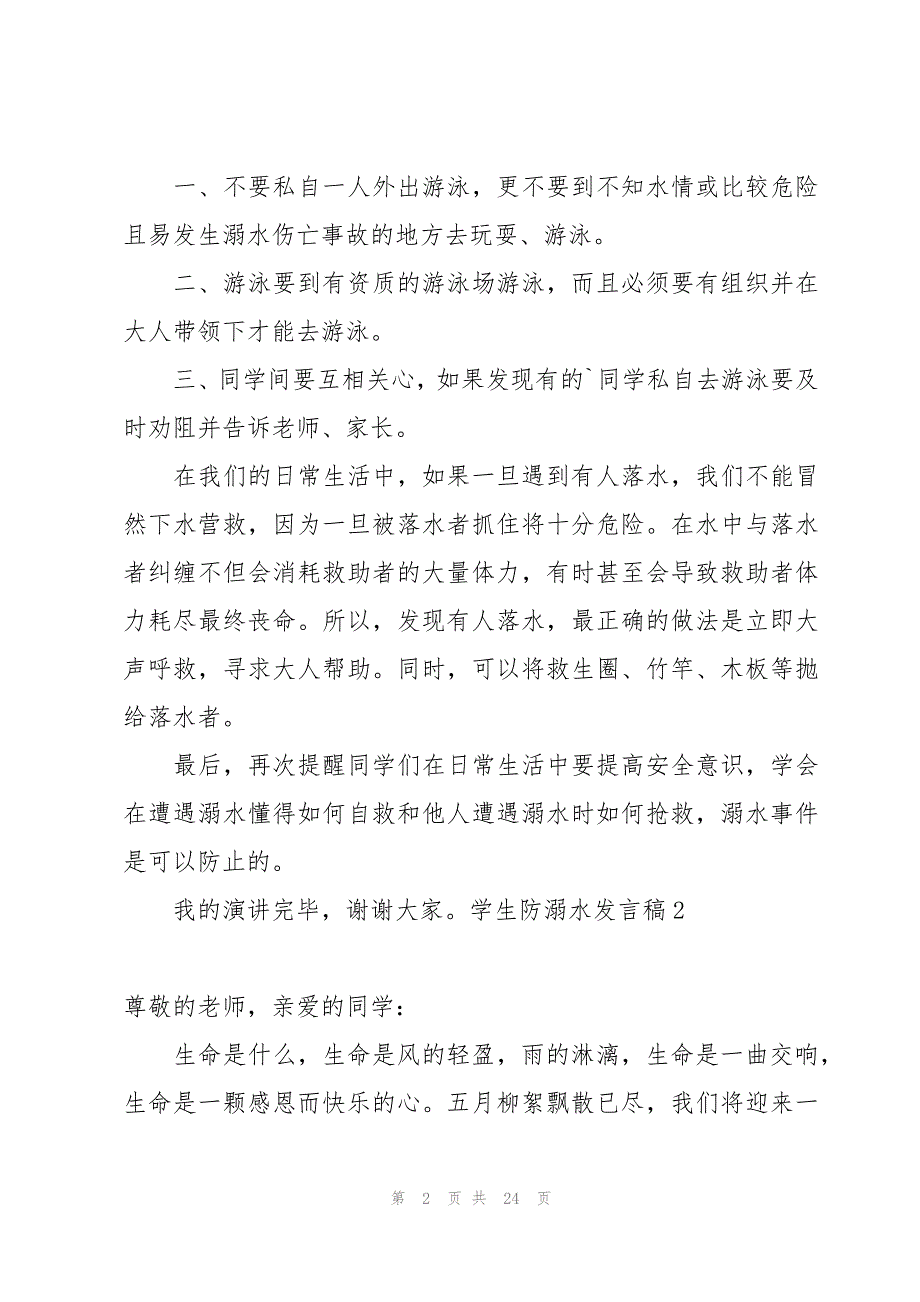 一、不要私自一人外出游泳，更不要到不知水情或比较危险
且易发生溺水伤亡事故的地方去玩耍、游泳。
二、游泳要到有资质的游泳场游泳，而且必须要有组织并在
大人带领下才能去游泳。
三、同学间要互相关心，如果发现有的`同学私自去游泳要及
时劝阻并告诉老师、家长。
在我们的日常生活中，如果一旦遇到有人落水，我们不能冒
然下水营救，因为一旦被落水者抓住将十分危险。在水中与落水
者纠缠不但会消耗救助者的大量体力，有时甚至会导致救助者体
力耗尽最终丧命。所以，发现有人落水，最正确的做法是立即大
声呼救，寻求大人帮助。同时，可以将救生圈、竹竿、木板等抛
给落水者。
最后，再次提醒同学们在日常生活中要提高安全意识，学会
在遭遇溺水懂得如何自救和他人遭遇溺水时如何抢救，溺水事件
是可以防止的。
我的演讲完毕，谢谢大家。学生防溺水发言稿2
尊敬的老师，亲爱的同学：
生命是什么，生命是风的轻盈，雨的淋漓，生命是一曲交响，
生命是一颗感恩而快乐的心。五月柳絮飘散已尽，我们将迎来一
第 2 页 共 24 页